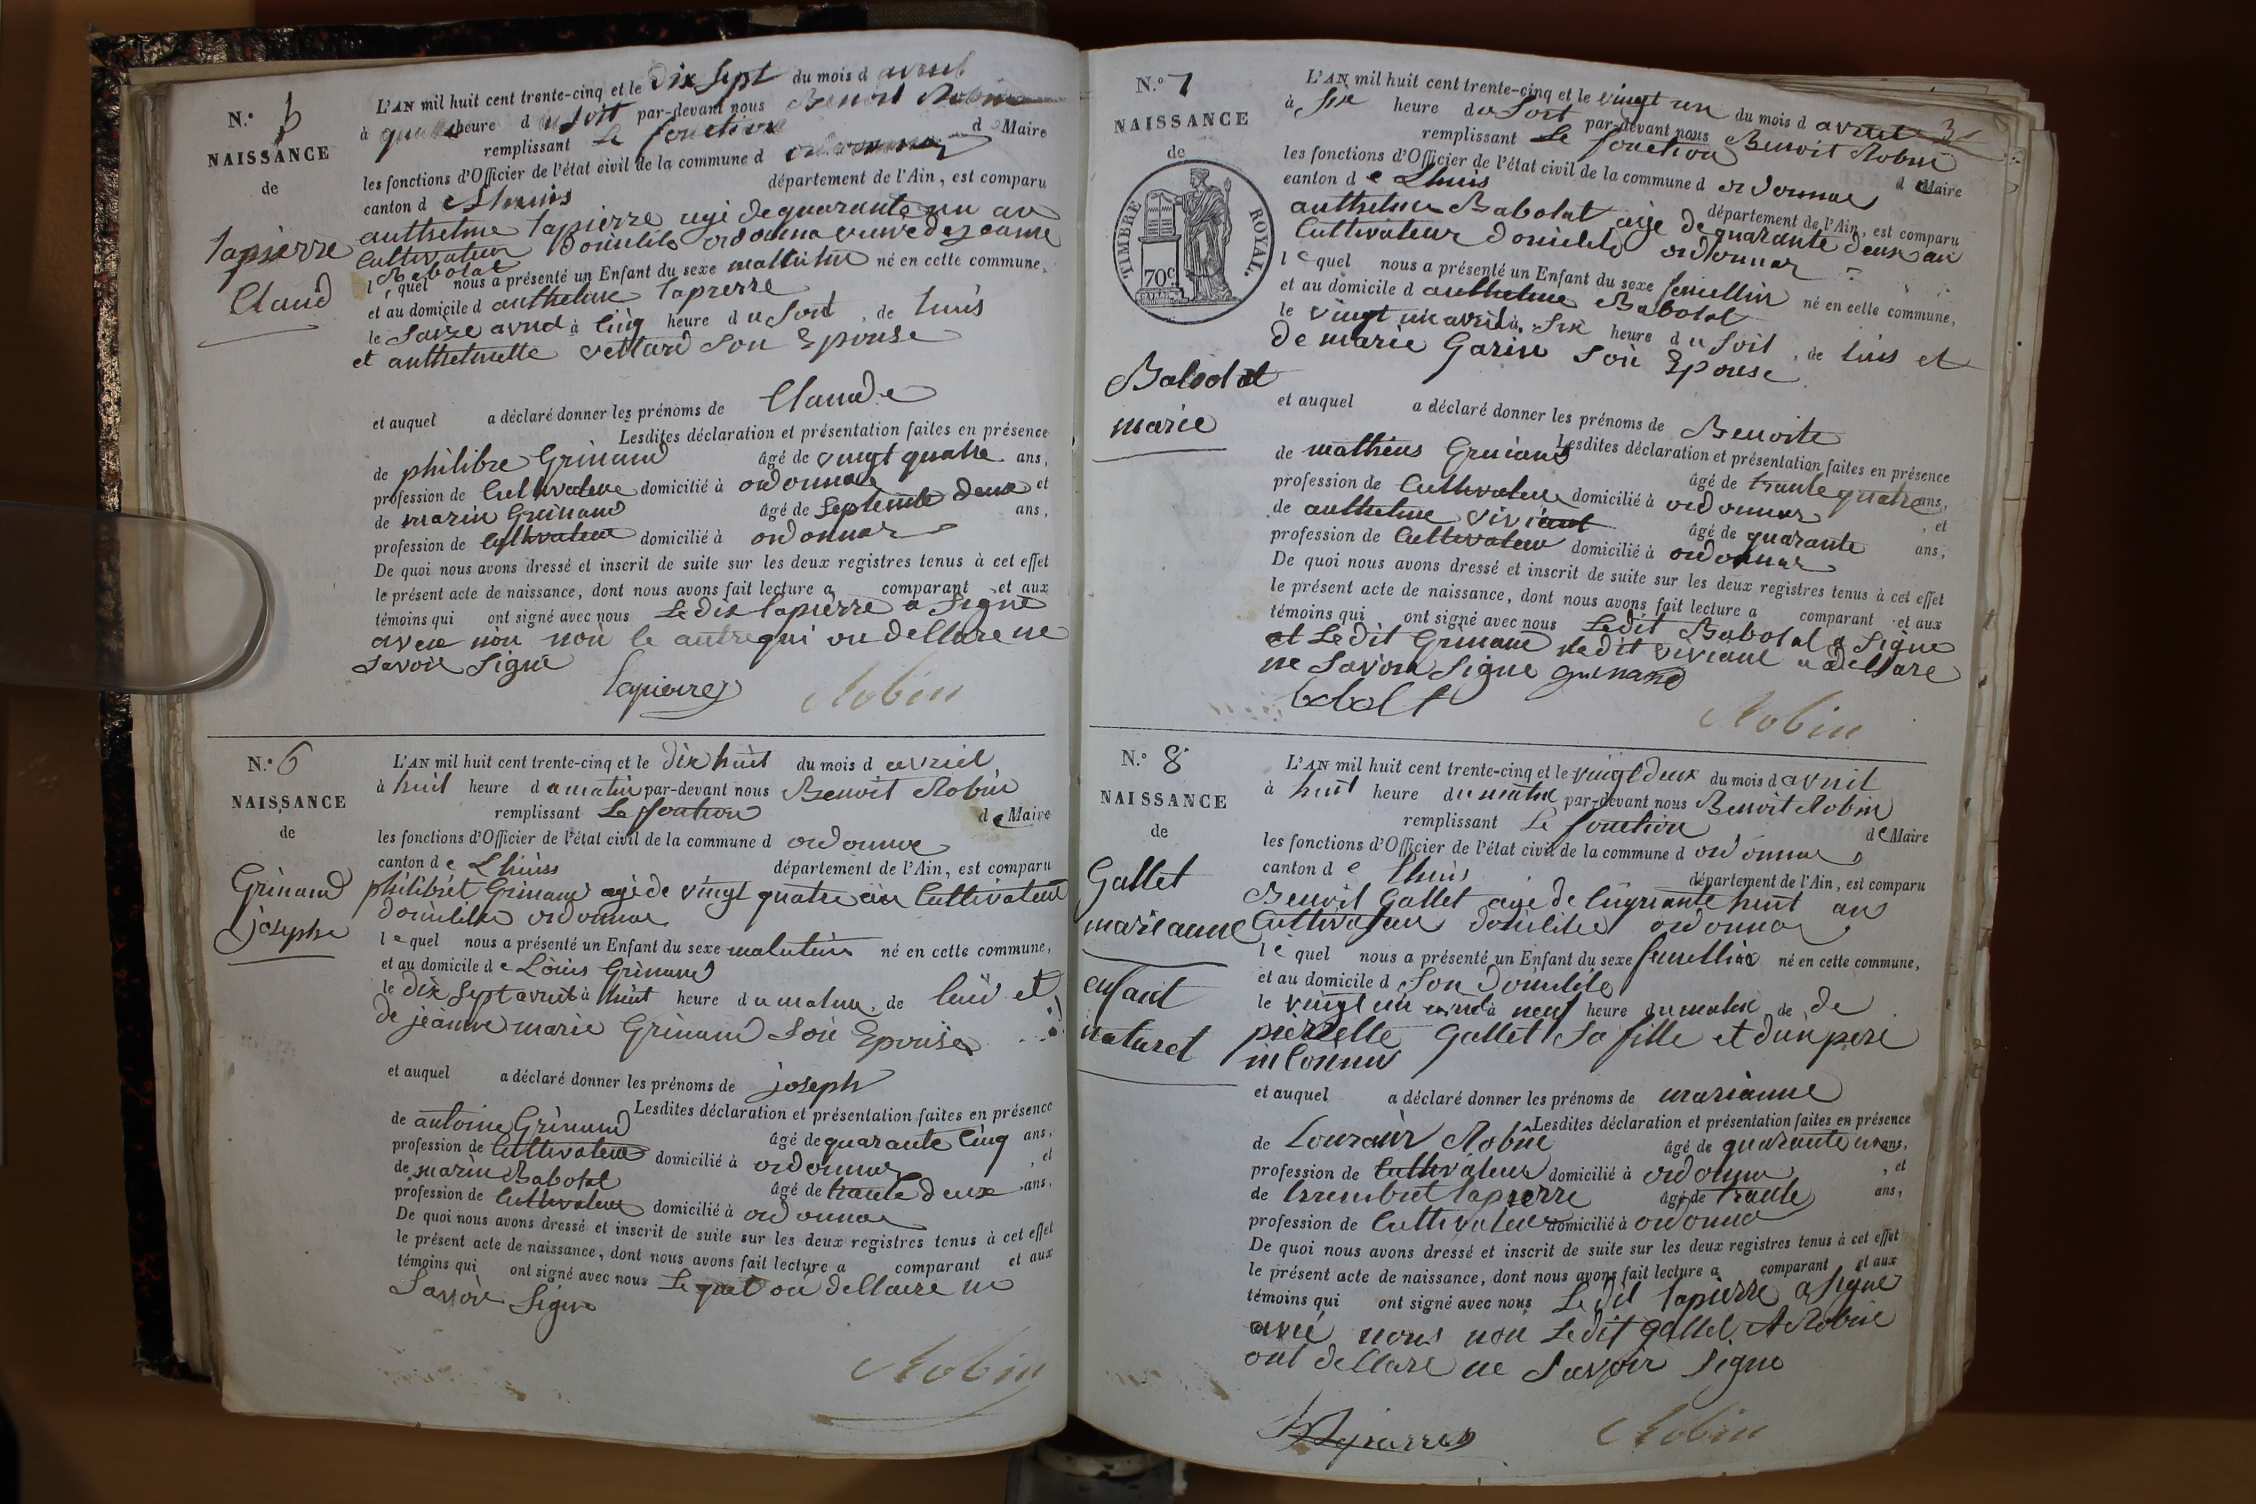 N.° 5
NAISSANCE
de
Lapierre
Claud
L'AN mil huit cent trente-cinq et le dix sept du mois d avril
à quatre heure d u soir par-devant nous Benoit Robin
remplissant Le fonction d e Maire
les fonctions d'Officier de l'état civil de la commune d ordonnas
canton d e Lhuis département de l'Ain, est comparu
anthelme lapierre agé de quarante un an
Cultivateur domicilé ordonna veuve de jeanne
Babolat
l e quel nous a présenté un Enfant du sexe masculin né en cette commune,
et au domicile d anthelme lapierre
le saize avril à cinq heure d u soir, de luis
et anthelmette vettard son Epouse
et auquel a déclaré donner les prénoms de Claude
Lesdites déclaration et présentation faites en présence
de philibre Grinand âgé de vingt quatre ans,
profession de Cultivateur domicilié à ordonnas et
de marin Grinand âgé de septente deux ans,
profession de Cultivateur domicilié à ordonnas
De quoi nous avons dressé et inscrit de suite sur les deux registres tenus à cet effet
le présent acte de naissance, dont nous avons fait lecture a comparant et aux
témoins qui ont signé avec nous Le dit lapierre a signé
avec nou non le autre qui on dellare ne
savoir signé
lapierre Robin
N.° 6
NAISSANCE
de
Grinand
josephe
L'AN mil huit cent trente-cinq et le dix huit du mois d avril
à huit heure d u matin par-devant nous Benoit Robin
remplissant Le fontion d e Maire
les fonctions d'Officier de l'état civil de la commune d ordonna
canton d e Lhuis département de l'Ain, est comparu
philibret Grinand agé de vingt quatre an Cultivateur
domicilie ordonnas
l e quel nous a présenté un Enfant du sexe né en cette commune,
et au domicile d e Louis Grinand
le dix sept avril à huit heure d u matin, de lui et
de jeanne marie Grinand son Epouse
et auquel a déclaré donner les prénoms de joseph
Lesdites déclaration et présentation faites en présence
de antoine Grinand âgé de quarante cinq ans,
profession de Cultivateur domicilié à ordonnas, et
de marin Babolat âgé de trante deux ans,
profession de Cultivateur domicilié à ordonnas
De quoi nous avons dressé et inscrit de suite sur les deux registres tenus à cet effet
le présent acte de naissance, dont nous avons fait lecture a comparant et aux
témoins qui ont signé avec nous Le quel on dellare ne
savoir signe
Robin
N.° 7
NAISSANCE
de
TIMBRE ROYAL.
70c.
Babolat
marie
3
L'AN mil huit cent trente-cinq et le vingt un du mois d avril
à six heure d u soir par-devant nous Benoit Robin
remplissant Le fonction d e Maire
les fonctions d'Officier de l'état civil de la commune d ordonnas
canton d e Lhuis département de l'Ain, est comparu
anthelme Babolat age de quarante deux an
Cultivateur domicilé ordonnas
l e quel nous a présenté un Enfant du sexe femellin né en cette commune,
et au domicile d anthelme Babolat
le vingt un avril à six heure d u soir, de luis et
de marie Garin son Epouse
et auquel a déclaré donner les prénoms de Benoite
Lesdites déclaration et présentation faites en présence
de mathieus Grinand âgé de trante quatre ans,
profession de Cultivateur domicilié à ordonnas, et
de anthelme viviant âgé de quarante ans,
profession de Cultivateur domicilié à ordonnas
De quoi nous avons dressé et inscrit de suite sur les deux registres tenus à cet effet
le présent acte de naissance, dont nous avons fait lecture a comparant et aux
témoins qui ont signé avec nous Ledit Babolat a signe
et Le dit Grinand le dit viviant a dellare
ne savoir signe grinand
Robin
N.° 8
NAISSANCE
de
Gallet
marieanne
enfant
naturel
L'AN mil huit cent trente-cinq et le vingt deux du mois d avril
à huit heure du matin par-devant nous Benoit Robin
remplissant Le fonction d e Maire
les fonctions d'Officier de l'état civil de la commune d ordonnas
canton d e Lhuis département de l'Ain, est comparu
Benoit Gallet age de cinquante huit an
Cultivateur domicilie ordonnas
l e quel nous a présenté un Enfant du sexe femellin né en cette commune,
et au domicile d son domicile
le vingt un avril à neuf heure du matin de de
pierrette Gallet sa fille et d'un pere
inconnu
et auquel a déclaré donner les prénoms de marianne
Lesdites déclaration et présentation faites en présence
de Robin âgé de quarante un ans,
profession de Cultivateur domicilié à ordonna, et
de lapierre âgé de trante ans,
profession de Cultivateur domicilié à ordonna
De quoi nous avons dressé et inscrit de suite sur les deux registres tenus à cet effet
le présent acte de naissance, dont nous avons fait lecture a comparant et aux
témoins qui ont signé avec nous Le dit lapierre a signe
avec nous non Ledit gallet et Robin
ont dellare ne savoir signe
Robin